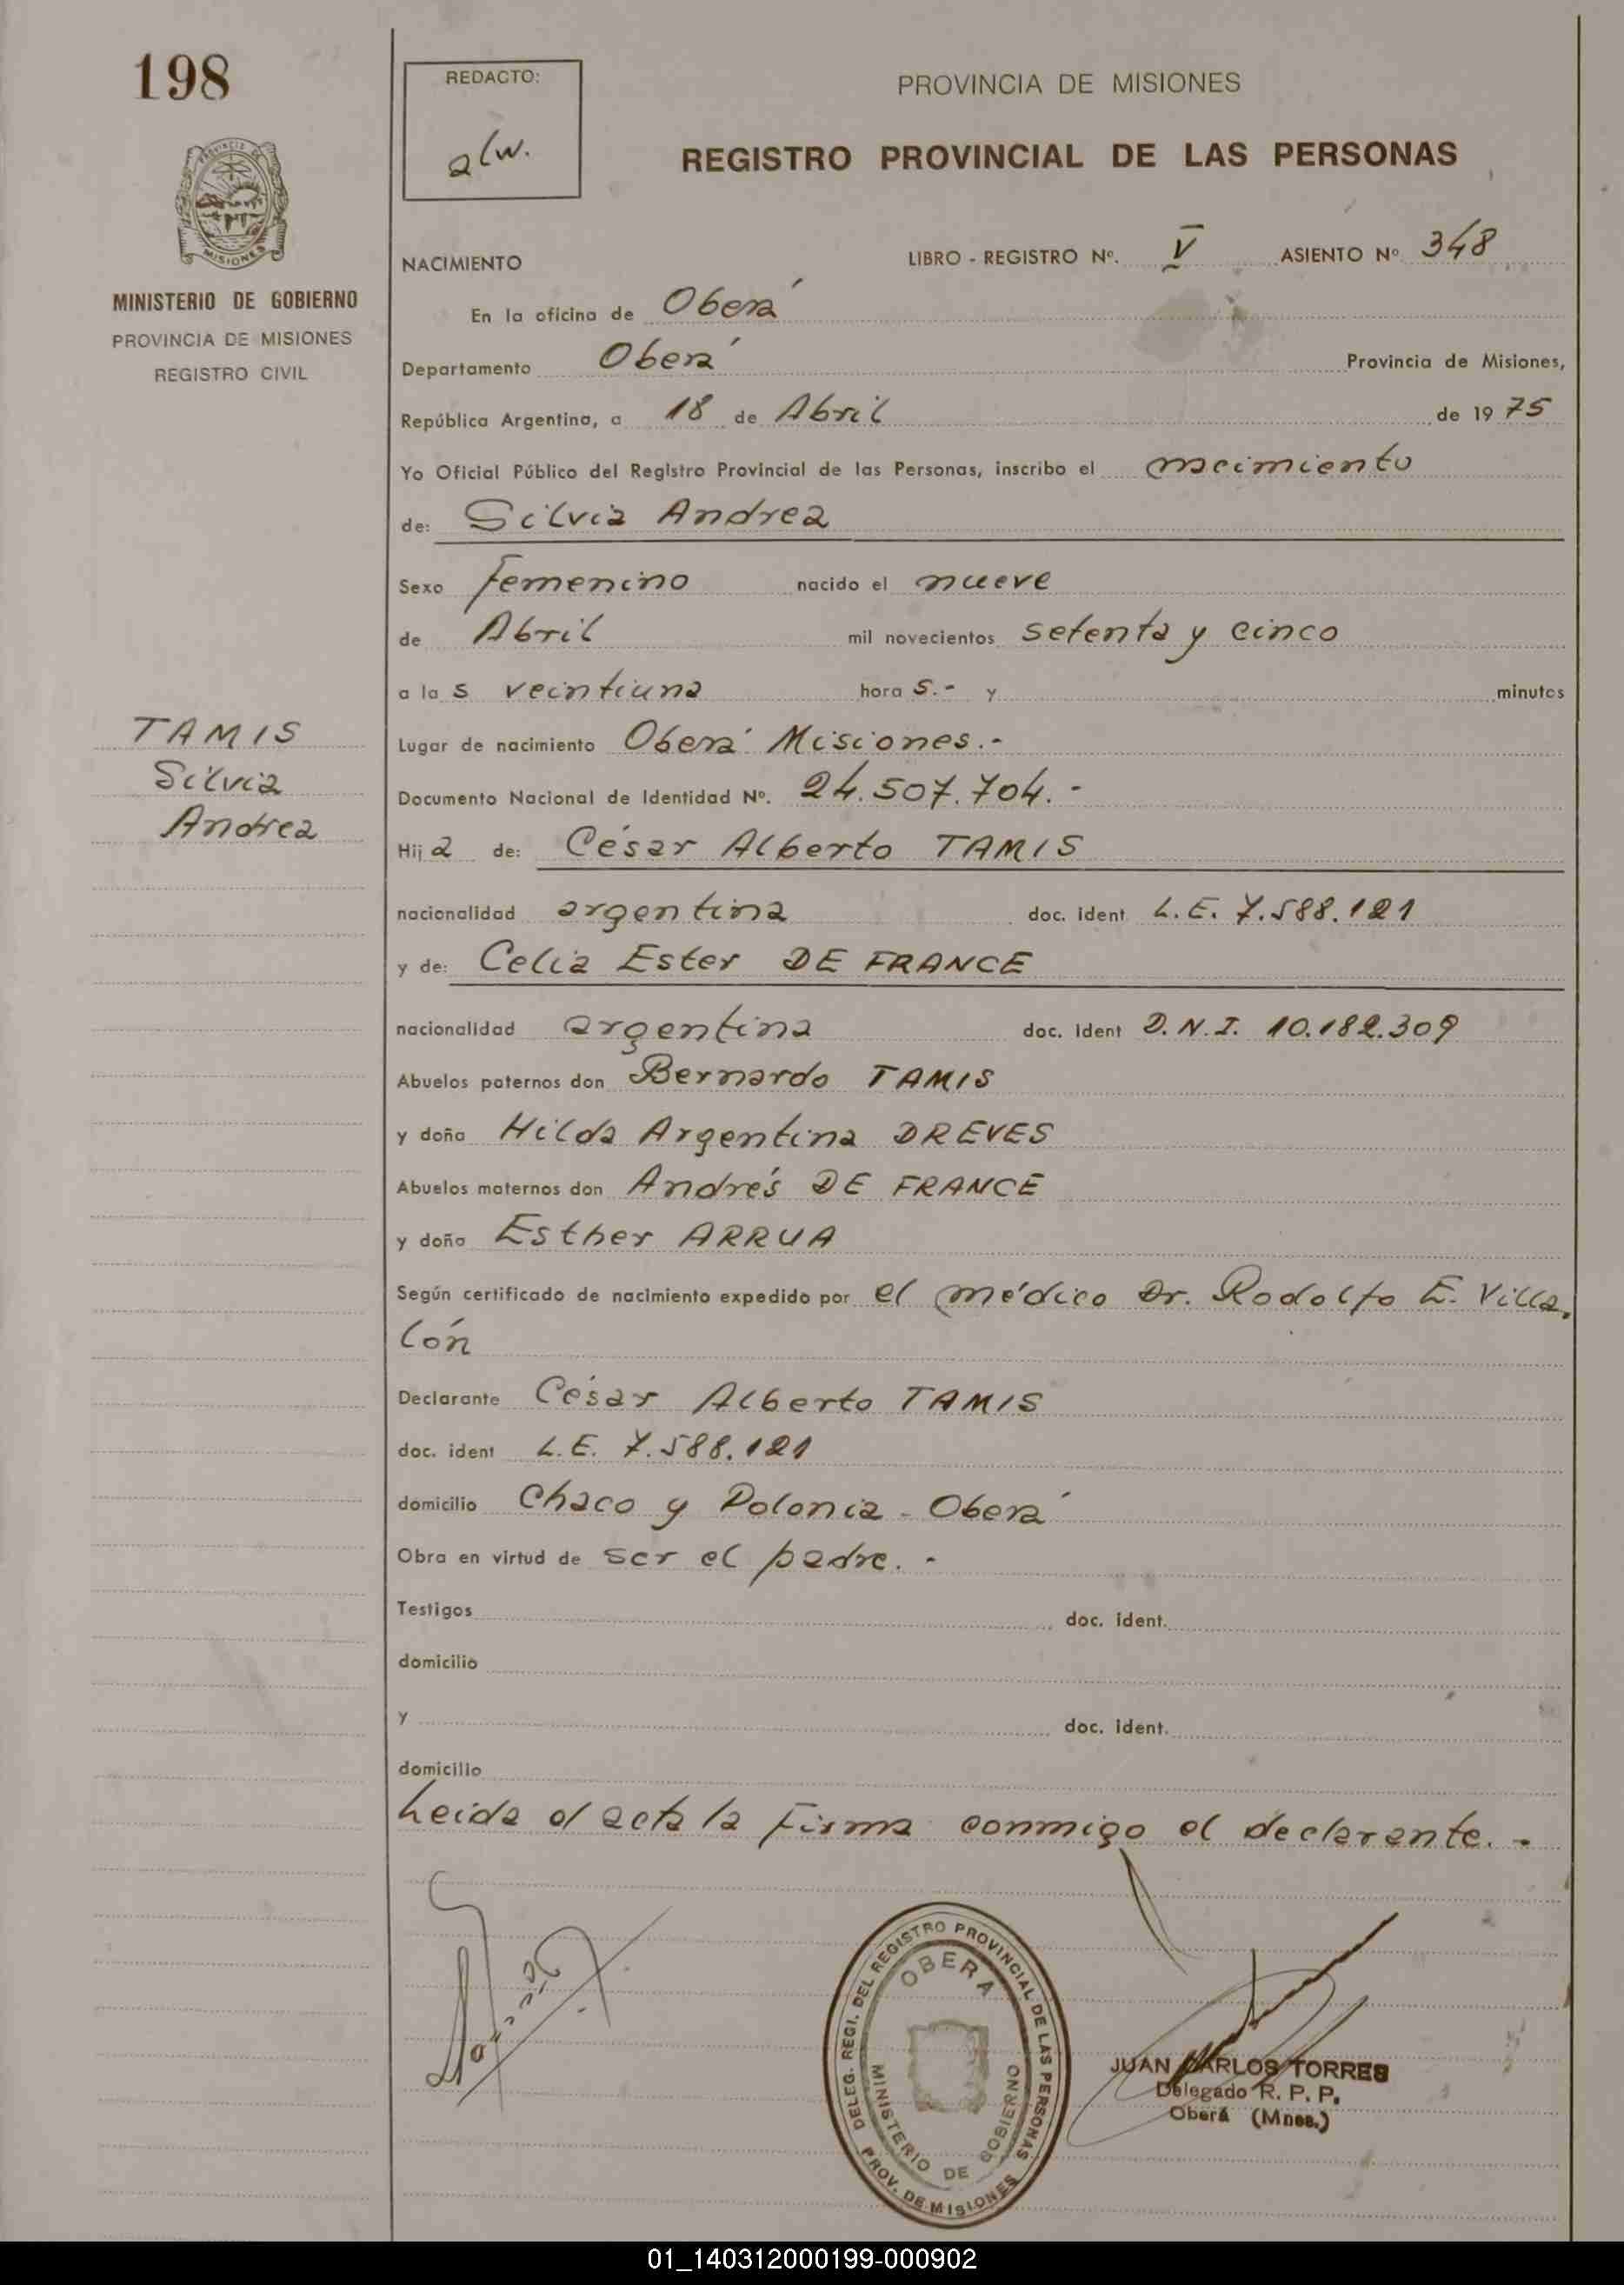 198
REDACTO:
alw.
PROVINCIA DE MISIONES
REGISTRO PROVINCIAL DE LAS PERSONAS
PROVINCIA DE
MISIONES
MINISTERIO DE GOBIERNO
PROVINCIA DE MISIONES
REGISTRO CIVIL
NACIMIENTO LIBRO - REGISTRO Nº. V ASIENTO Nº 348
En la oficina de Oberá
Departamento Oberá Provincia de Misiones,
República Argentina, a 18 de Abril de 1975
Yo Oficial Público del Registro Provincial de las Personas, inscribo el nacimiento
de: Silvia Andrea
Sexo femenino nacido el nueve
de Abril mil novecientos setenta y cinco
a la s veintiuna hora s.- y minutos
TAMIS
Silvia
Andrea
Lugar de nacimiento Oberá Misiones.-
Documento Nacional de Identidad Nº. 24.507.704.-
Hij a de: César Alberto TAMIS
nacionalidad argentina doc. ident L.E. 7.588.121
y de: Celia Ester DE FRANCE
nacionalidad argentina doc. ident D.N.I. 10.182.309
Abuelos paternos don Bernardo TAMIS
y doña Hilda Argentina DREVES
Abuelos maternos don Andrés DE FRANCE
y doña Esther ARRUA
Según certificado de nacimiento expedido por el médico Dr. Rodolfo E. Villa,
lón
Declarante César Alberto TAMIS
doc. ident L.E. 7.588.121
domicilio Chaco y Polonia - Oberá
Obra en virtud de ser el padre.-
Testigos doc. ident.
domicilio
y doc. ident.
domicilio
Leida el acta la firma conmigo el declarante.-
DELEG. REGI. DEL REGISTRO PROVINCIAL DE LAS PERSONAS
OBERA
MINISTERIO DE GOBIERNO
PROV. DE MISIONES
JUAN CARLOS TORRES
Delegado R. P. P.
Oberá (Mnes.)
01_140312000199-000902